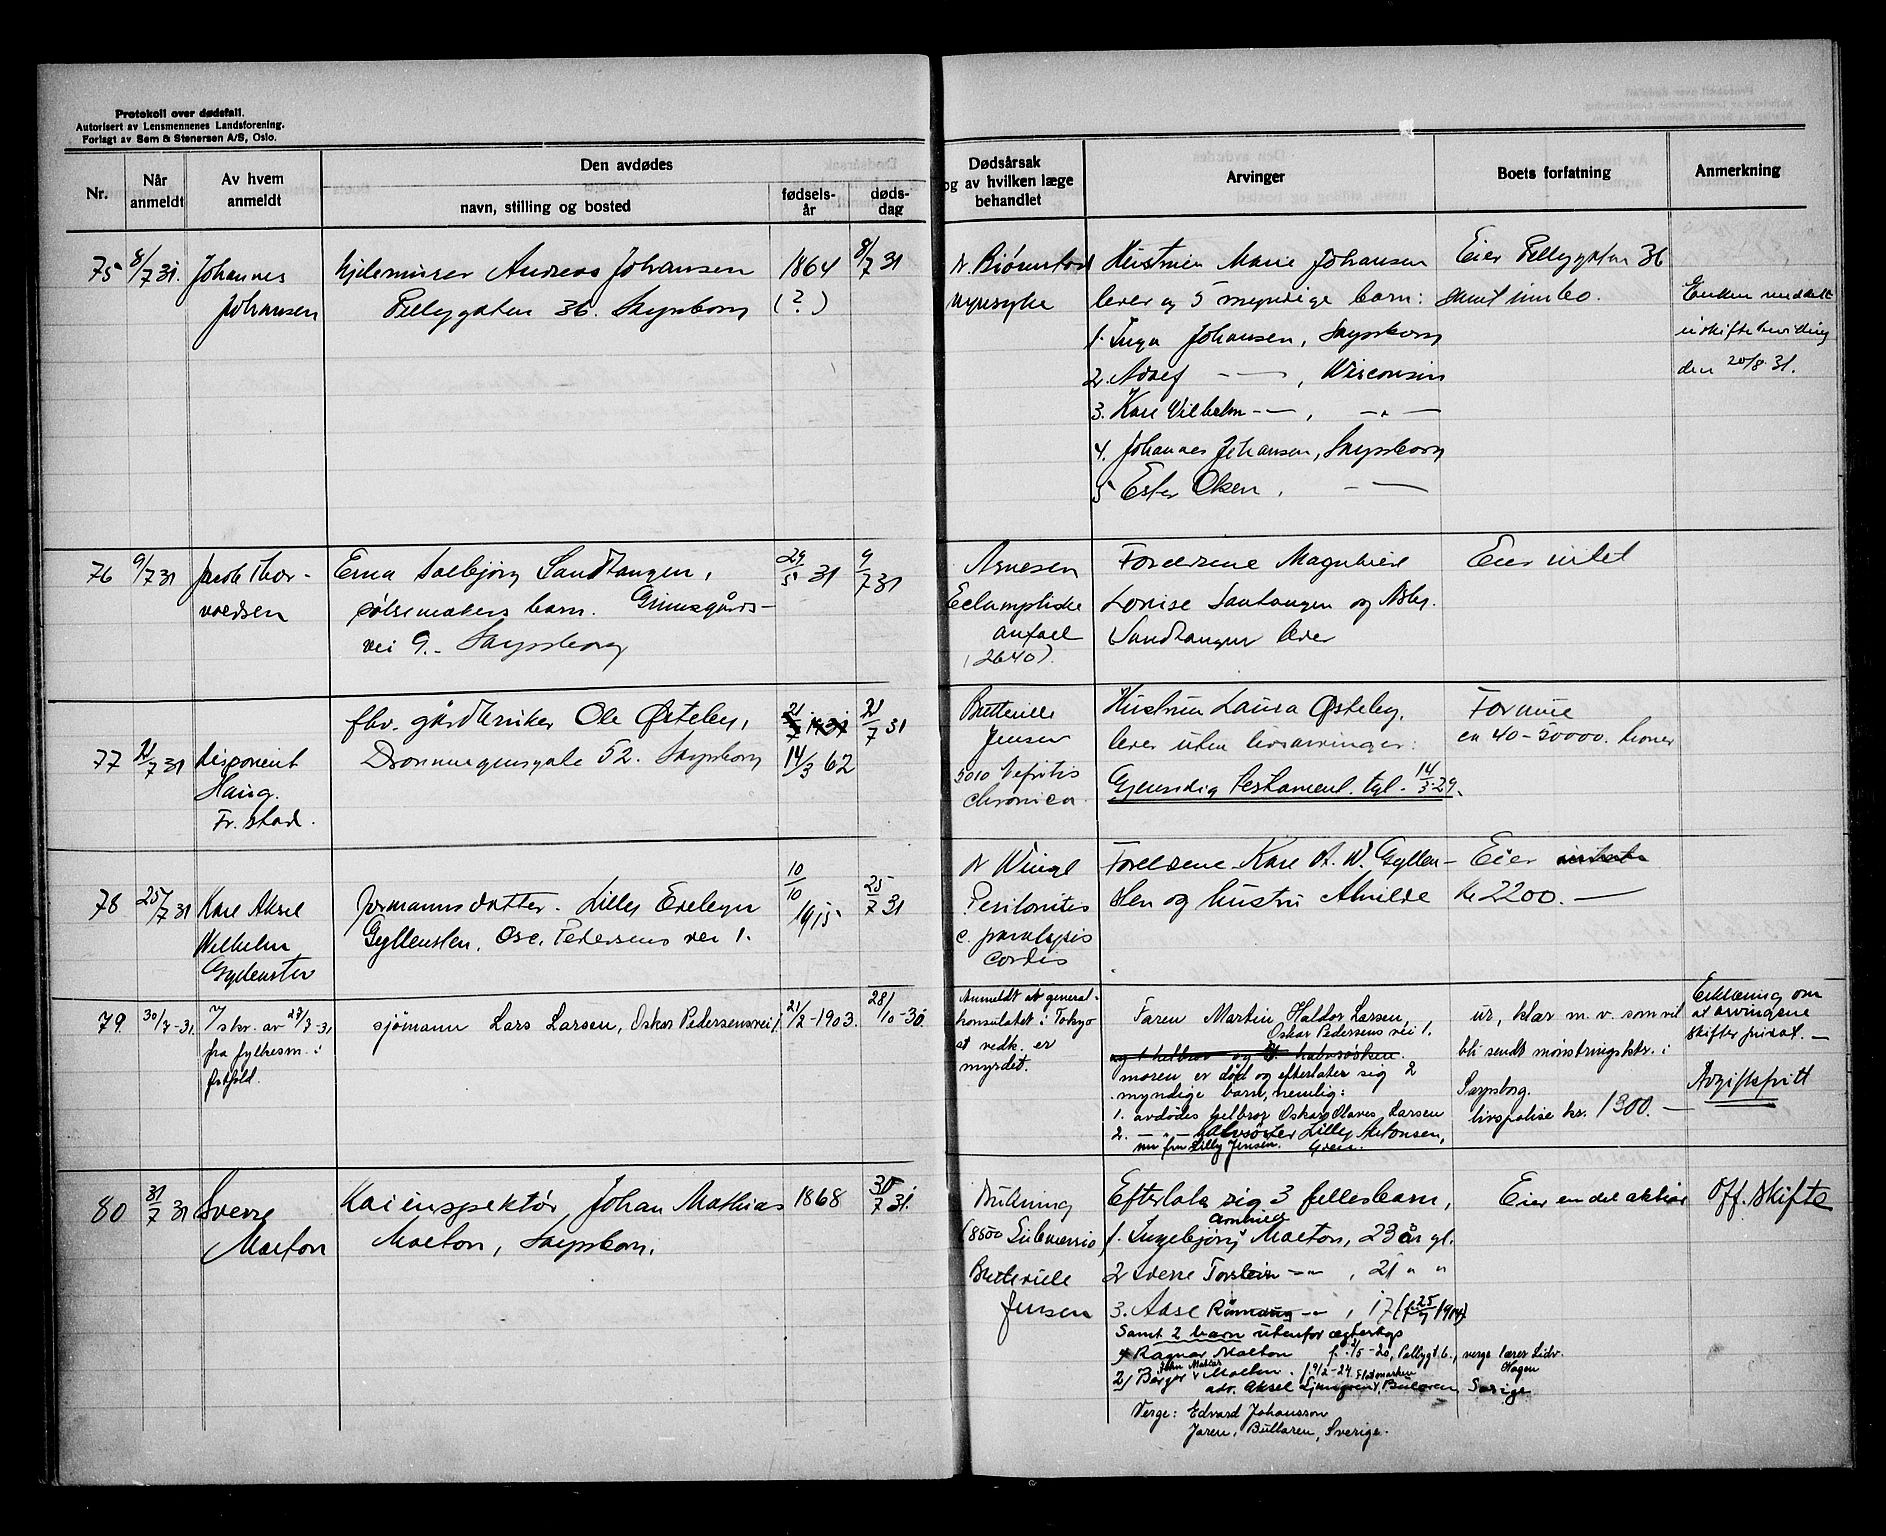 Protokoll over dødsfall.
Autorisert av Lensmennenes Landsforening.
Forlagt av Sem & Stenersen A/S, Oslo.
Nr.
Når anmeldt
Av hvem anmeldt
Den avdødes
navn, stilling og bosted
fødsels-år
døds-dag
Dødsårsak og av hvilken læge behandlet
Arvinger
Boets forfatning
Anmerkning
75 8/7 31. Johannes
Johansen
Andreas Johansen
Pellygaten 36. Sarpsborg
1864
(?)
8/7 31
nyresyke
Hustruen Marie Johansen
lever og 5 myndige barn:
1. Inga Johansen, Sarpsborg
2. Adolf — " — , Wisconsin
3. Karl Vilhelm — " — , — " —
4. Johannes Johansen, Sarpsborg
5 Ester Olsen, — " —
Eier Pellygaten 36
samt innbo.
Enken meddelt
uskiftebevilling
den 20/8 31.
76 9/7 31 Jacob Thor-
valdsen
Erna Solbjørg Sandtangen,
pølsemakers barn.
vei 9. Sarpsborg
29/5 31
9/7 31
Arnesen
Eclamptiske
anfall
(2640).
Foreldrene
Lovise Santangen og
Sandtangen lever
Eier intet
77 21/7 31 disponent
Haug.
Fr.stad.
fhv. gårdbruker Ole Østeby,
Dronningensgate 52. Sarpsborg
14/3 62
21/7 31
Butteville
Jensen
5010 Nefritis
chronica.
Hustruen Laura Østeby,
lever uten livsarvinger:
Gjensidig testament. tgl. 14/3-29.
Formue
ca 40-50000. kroner
78 25/7 31 Karl Aksel
Wilhelm
Gyllensten
Formannsdatter. Lilly
Gyllensten. Osc. Pedersens vei 1.
10/10 1915
25/7 31
Peritonitis
c. paralysis
cordis
Foreldrene Karl A. W. Gyllen-
sten og hustru Alvilde
Eier
kr 2200. —
79 30/7-31. skr. av 27/7-31
fra fylkesm. i
Østfold.
sjømann Lars Larsen, Oskar Pedersensvei 1.
21/2-1903.
28/10-30.
Anmeldt at general-
konsulatet i Tokyo
at vedk. er
myrdet.
Faren Martin Haldor Larsen,
Oskar Pedersens vei 1.
moren er død og efterlater sig 2
myndige barn, nemlig:
1. avdødes helbror Oskar Olaves Larsen
2. — " — halvsøster Lilly Antonsen,
nu fru Lilly Jensen. Greåker.
ur, klær m.v. som vil
bli sendt mønstringsktr. i
Sarpsborg.
livspolise kr. 1300. —
Erklæring om
at arvingene
skifter privat. —
Avgiftsfritt
80 31/7 31 Sverre
Moeton
Kaiinspektør, Johan Mathias
Moeton, Sarpsborg.
1868
30/7 31.
Drukning
(8500 Submersio
Butteville
Jensen
Efterlater sig 3 fellesbarn,
1. Ingebjørg Moeton, 23 år gl.
2 Sverre Torstein — " — , 21 " "
3. Aase — " — , 17 (f. 25/9 1914)
Samt 2 barn utenfor ægteskap
1) Ragnar Moeton f. 1/5-20, Pellygt. 6., verge lærer Lidv.
Hagen
2) Birger Moeton. f. 9/2-24.
adr. Aksel Ljungren, Bularen, Sverige
Verge: Edvard Johansson
Jaren, Bullaren, Sverige.
Eier en del aktier
Off. skifte